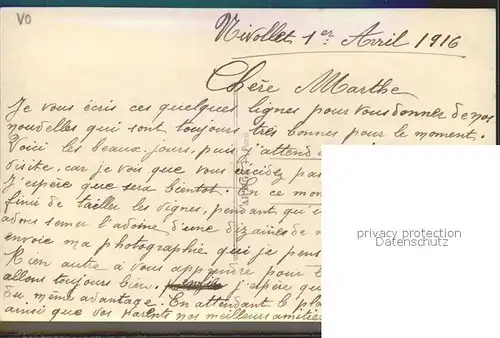 VO
Nivollet 1er Avril 1916
Chère Marthe
Je vous écris ces quelques lignes pour vous donner de nos
nouvelles qui sont toujours très bonnes pour le moment.
Voici les beaux jours, puis j'attend
visite, car je vois que vous décidez pas
J'espère que sera bientot. En ce mom
fini de tailler les vignes, pendant qu'
semer l'avoine d'une dizaines de
envoie ma photographie qui je pens
Rien autre à vous apprendre pour
allons toujours bien, j'espère qu
du même avantage. En attendant le pla
ainsi que vos Parents nos meilleurs amitié
privacy protection
Datenschutz